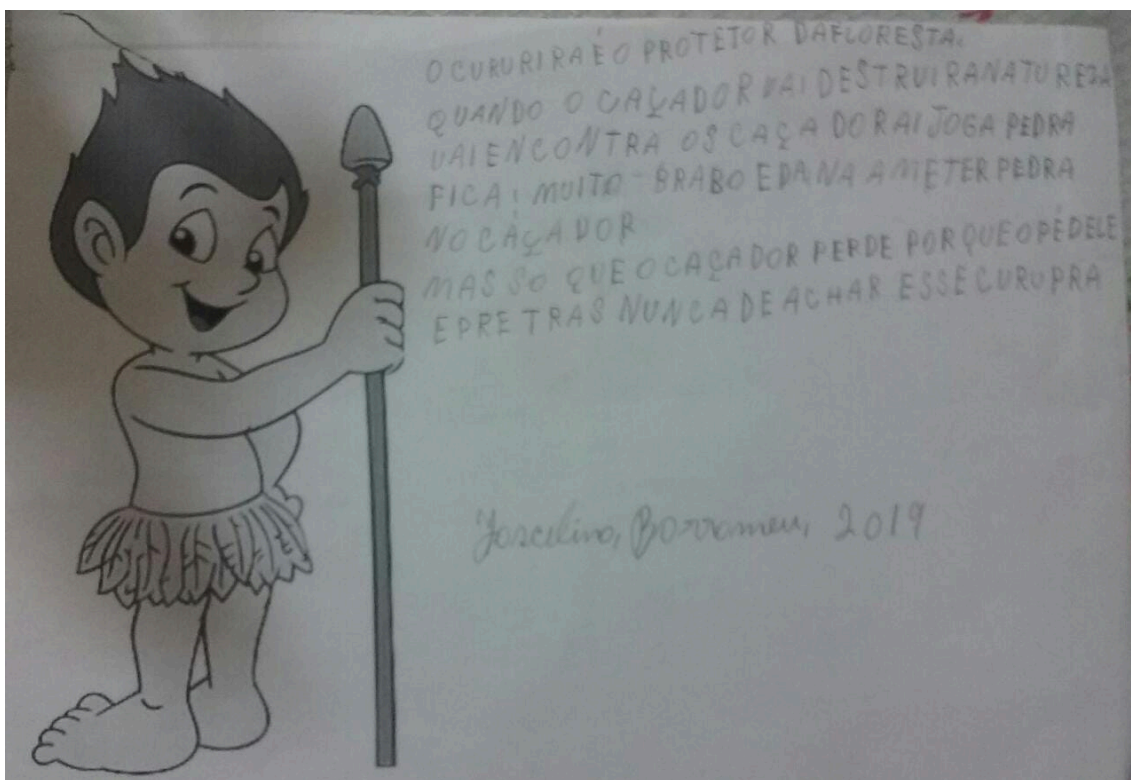 O CURURIRA É O PROTETOR DAFLORESTA.
QUANDO O CAÇADOR VAI DESTRUIRANATUREZA
VAIENCONTRA OS CAÇADORAI JOGA PEDRA
FICA; MUITO BRABO EDANA AMETER PEDRA
NO CAÇADOR
MAS SO QUE O CAÇADOR PERDE PORQUE O PÉ DELE
E PRE TRAS NUNCA DE ACHAR ESSE CURUPRA
Joscelino, Borromeu, 2019